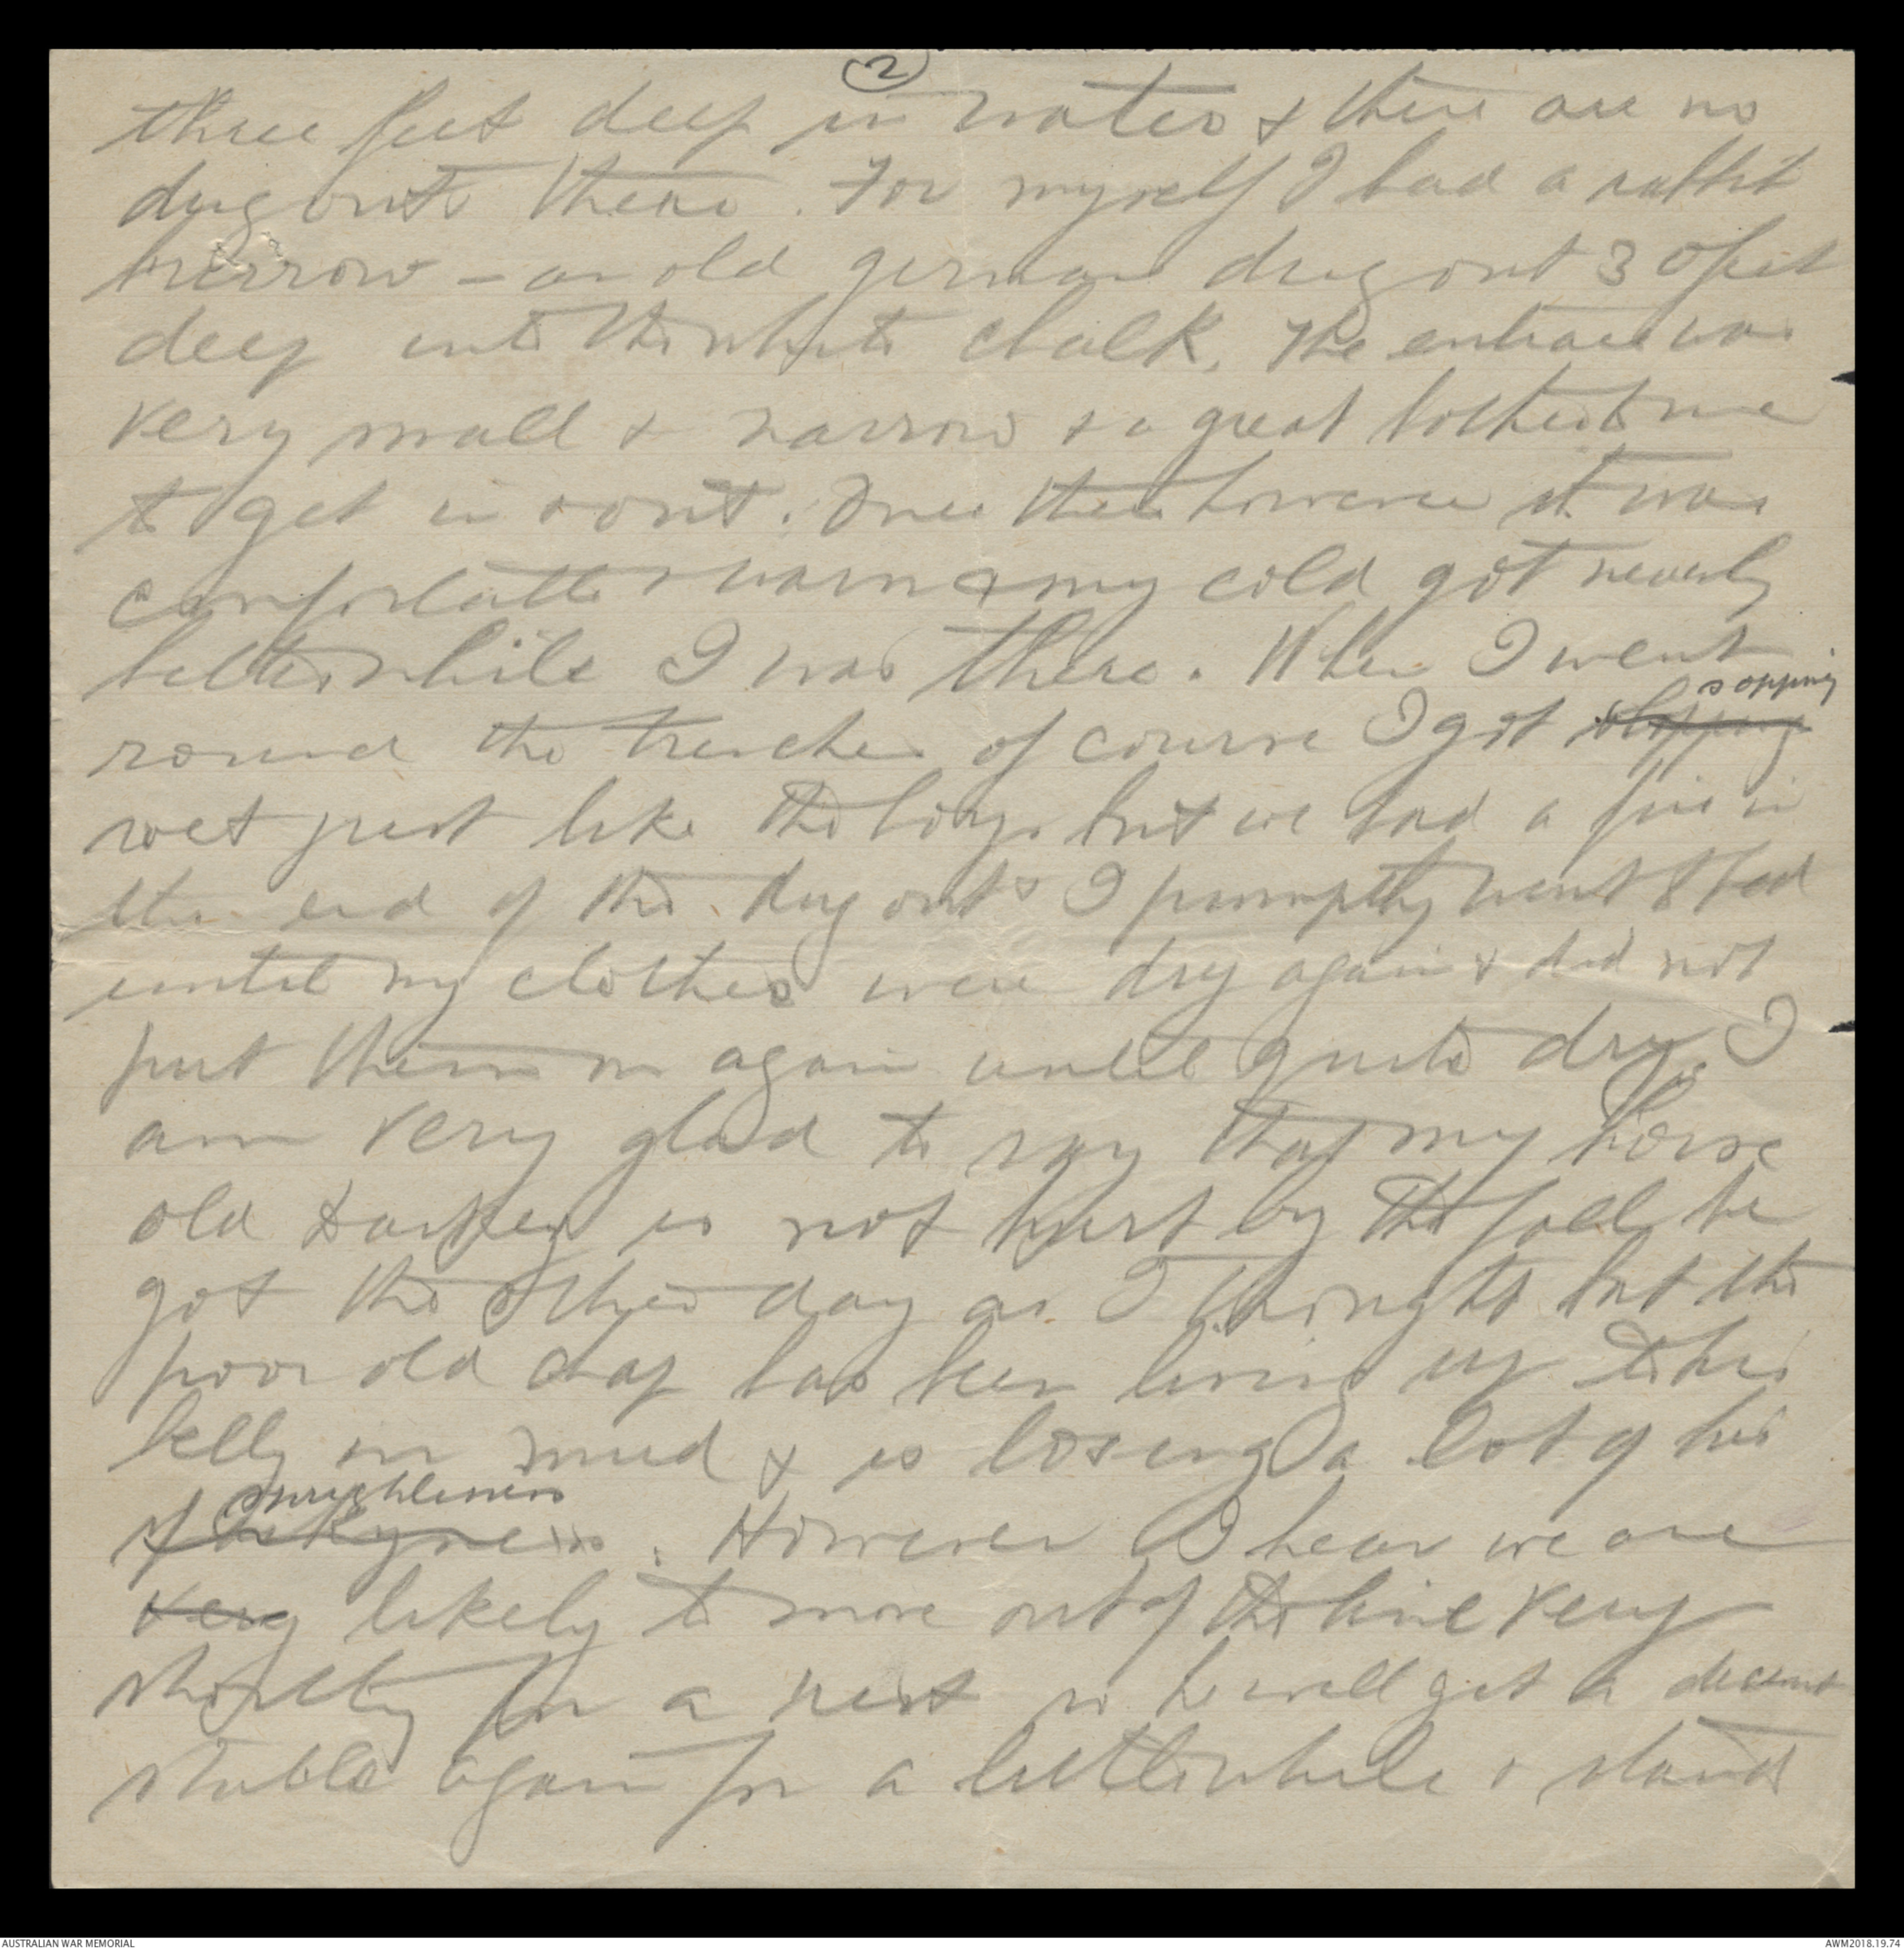 (2)
three feet deep in water & there are no
dug outs there. For myself I had a rabbit
burrow - an old german dug out 30 feet
deep into the white chalk. The entrance was
very small & narrow & a great bother to me
to get in & out. Once there however it was
comfortable & warm & my cold got nearly
better while I was there. When I went
sopping
round the trenches of course I got slopping
wet just like the boys but we had a fire in
the end of the dug out & I promptly went to bed
until my clothes were dry again & did not
put them on again until quite dry. I
am very glad to say that my horse
old Darkey is not hurt by the fall he
got the other day as I thought but the
poor old chap has been living up to his
belly in mud & is losing a lot of his
sprightliness
friskyness. However I hear we are
very likely to move out of the line very
shortly for a rest so he will get a decent
stable again for a little while & stand
AUSTRALIAN WAR MEMORIAL
AWM2018.19.74